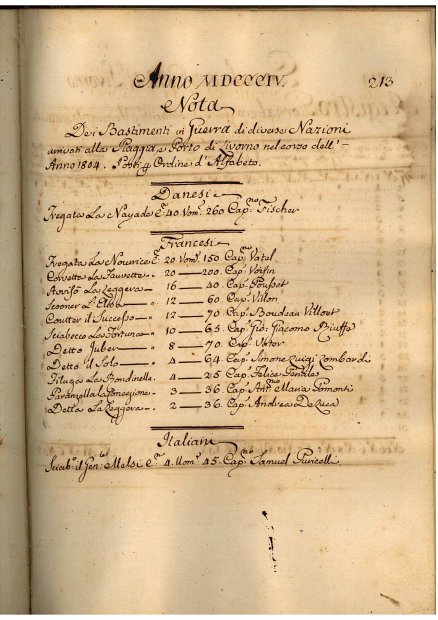 Anno MDCCCIV.
213
Nota
Dei Bastimenti di Guerra di diverse Nazioni
arrivati alla Piaggia, e Porto di Livorno nel corso dell'
Anno 1804. Posti Ordine d'Alfabeto.
Danesi
Fregata La Nayade C.ni 40. Vom.i 260 Cap.no Fischer
Francesi
Fregata La Nourrice C.ni 20. Vom.i 150 Cap.no Vatel
Corvetta La Fauvette „ 20 — 200 Cap. Voifin
Avviso La Leggera „ 16 — 40 Cap. Pousset
Scooner L'Elba „ 12 — 60 Cap. Villon
Coutter il Successo „ 12 — 70 Cap. Boudeau Villout
Sciabecco La Fortuna „ 10 — 65 Cap. Gio: Giacomo
Detto Juber „ 8 — 70 Cap.
Detto il Solo „ 4 — 64 Cap. Simone Luigi Lombardi
Filuga La Rondinella „ 4 — 25 Cap. Felice Gentile
Paranzella La Concezione „ 3 — 36 Cap. Ant.o Maria
Detta La Leggera „ 2 — 36 Cap. Andrea De Luca
Italiani
Sciab.o il Gen.les Melsi C.ni 4. Uom.i 45. Cap.no Samuel Puricelli